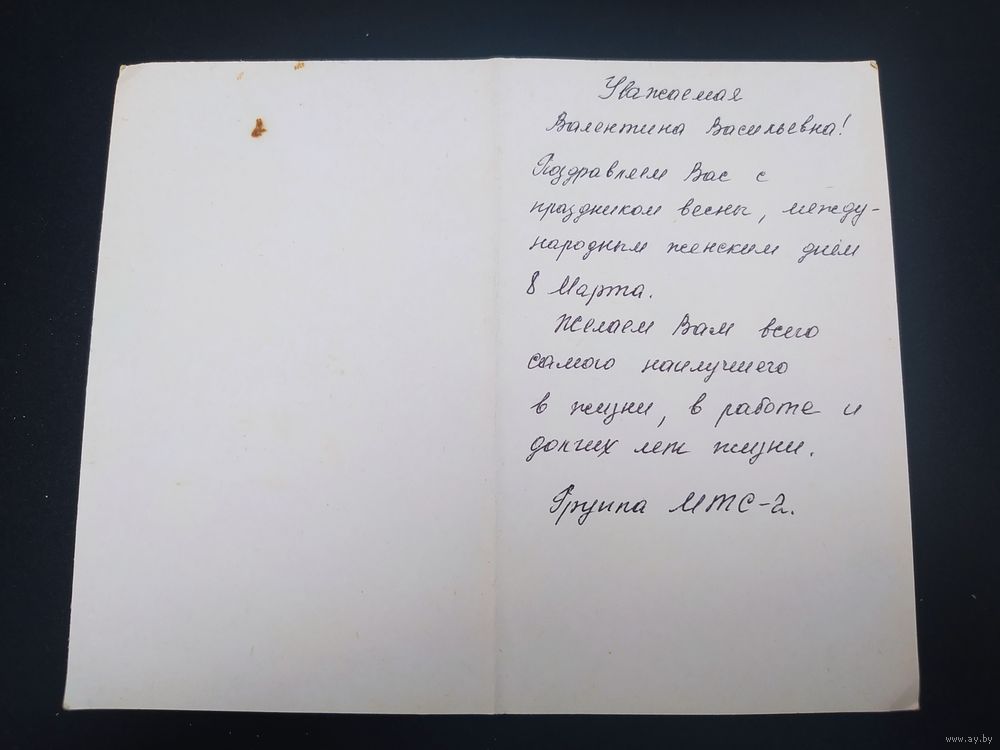 Уважаемая
Валентина Васильевна!
Поздравляем Вас с
праздником весны, между-
народным женским днём
8 Марта.
Желаем Вам всего
самого наилучшего
в жизни, в работе и
долгих лет жизни.
Группа МТС-2.
www.ay.by